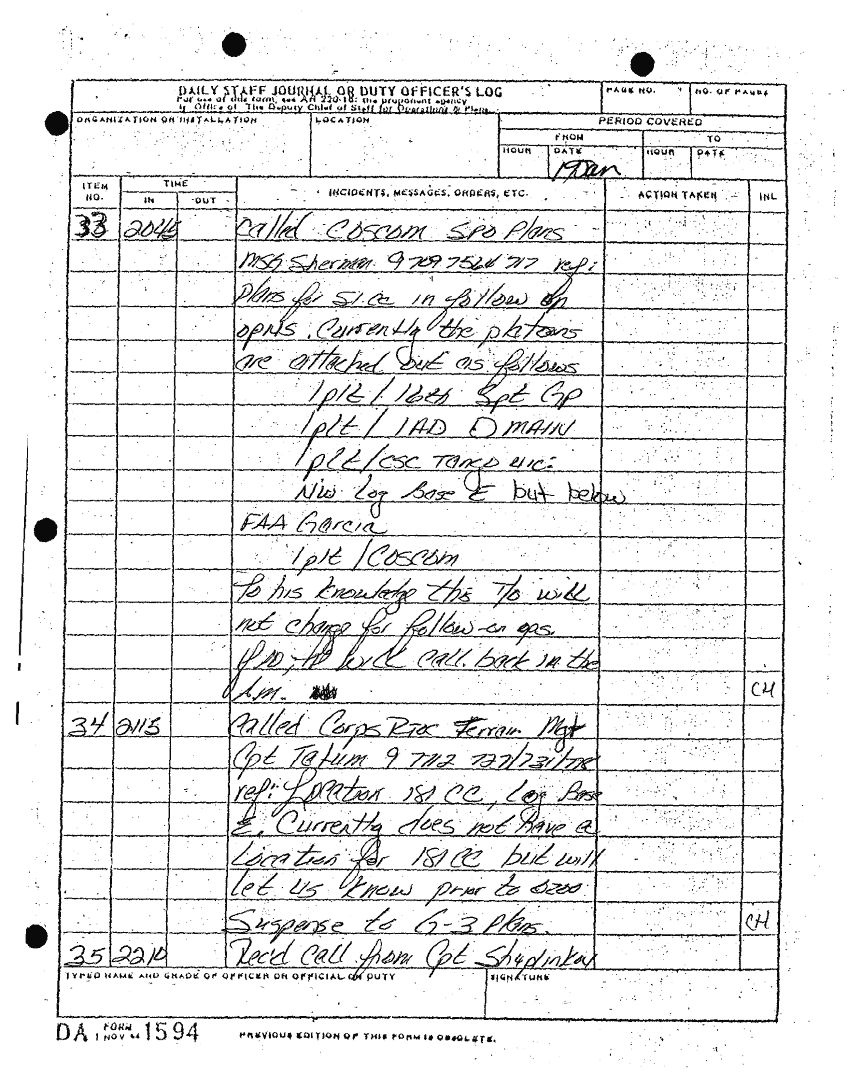 DAILY STAFF JOURNAL OR DUTY OFFICER'S LOG
For use of this form, see AR 220-15; the proponent agency
is Office of The Deputy Chief of Staff for Operations & Plans.
PAGE NO.
NO. OF PAGES
ORGANIZATION OR INSTALLATION
LOCATION
PERIOD COVERED
FROM
TO
HOUR
DATE
HOUR
DATE
Jan
ITEM NO.
TIME
IN
OUT
INCIDENTS, MESSAGES, ORDERS, ETC.
ACTION TAKEN
INL
33 2045 Called COSCOM SPO Plans
MSG Sherman 9 709 7564 717 ref:
plans for 51 CC in follow on
opns. Currently the platoons
are attached out as follows
1 plt / 16th Spt Gp
1 plt / 1AD MAIN
1 plt / CSC Tango vic:
NW Log Base E but below
FAA Garcia
1 plt / COSCOM
To his knowledge this T/O will
not change for follow-on ops.
If so, he will call back in the
A.M. CH
34 2115 Called Corps Rear Terrain Mgt
Cpt Tatum 9 7712 727/731/778
ref: Location 181 CC, Log Base
E. Currently does not have a
Location for 181 CC but will
let us know prior to 0200.
Suspense to G-3 Plans. CH
35 2210 Rec'd call from Cpt
TYPED NAME AND GRADE OF OFFICER OR OFFICIAL ON DUTY
SIGNATURE
DA FORM 1594
1 NOV
PREVIOUS EDITION OF THIS FORM IS OBSOLETE.